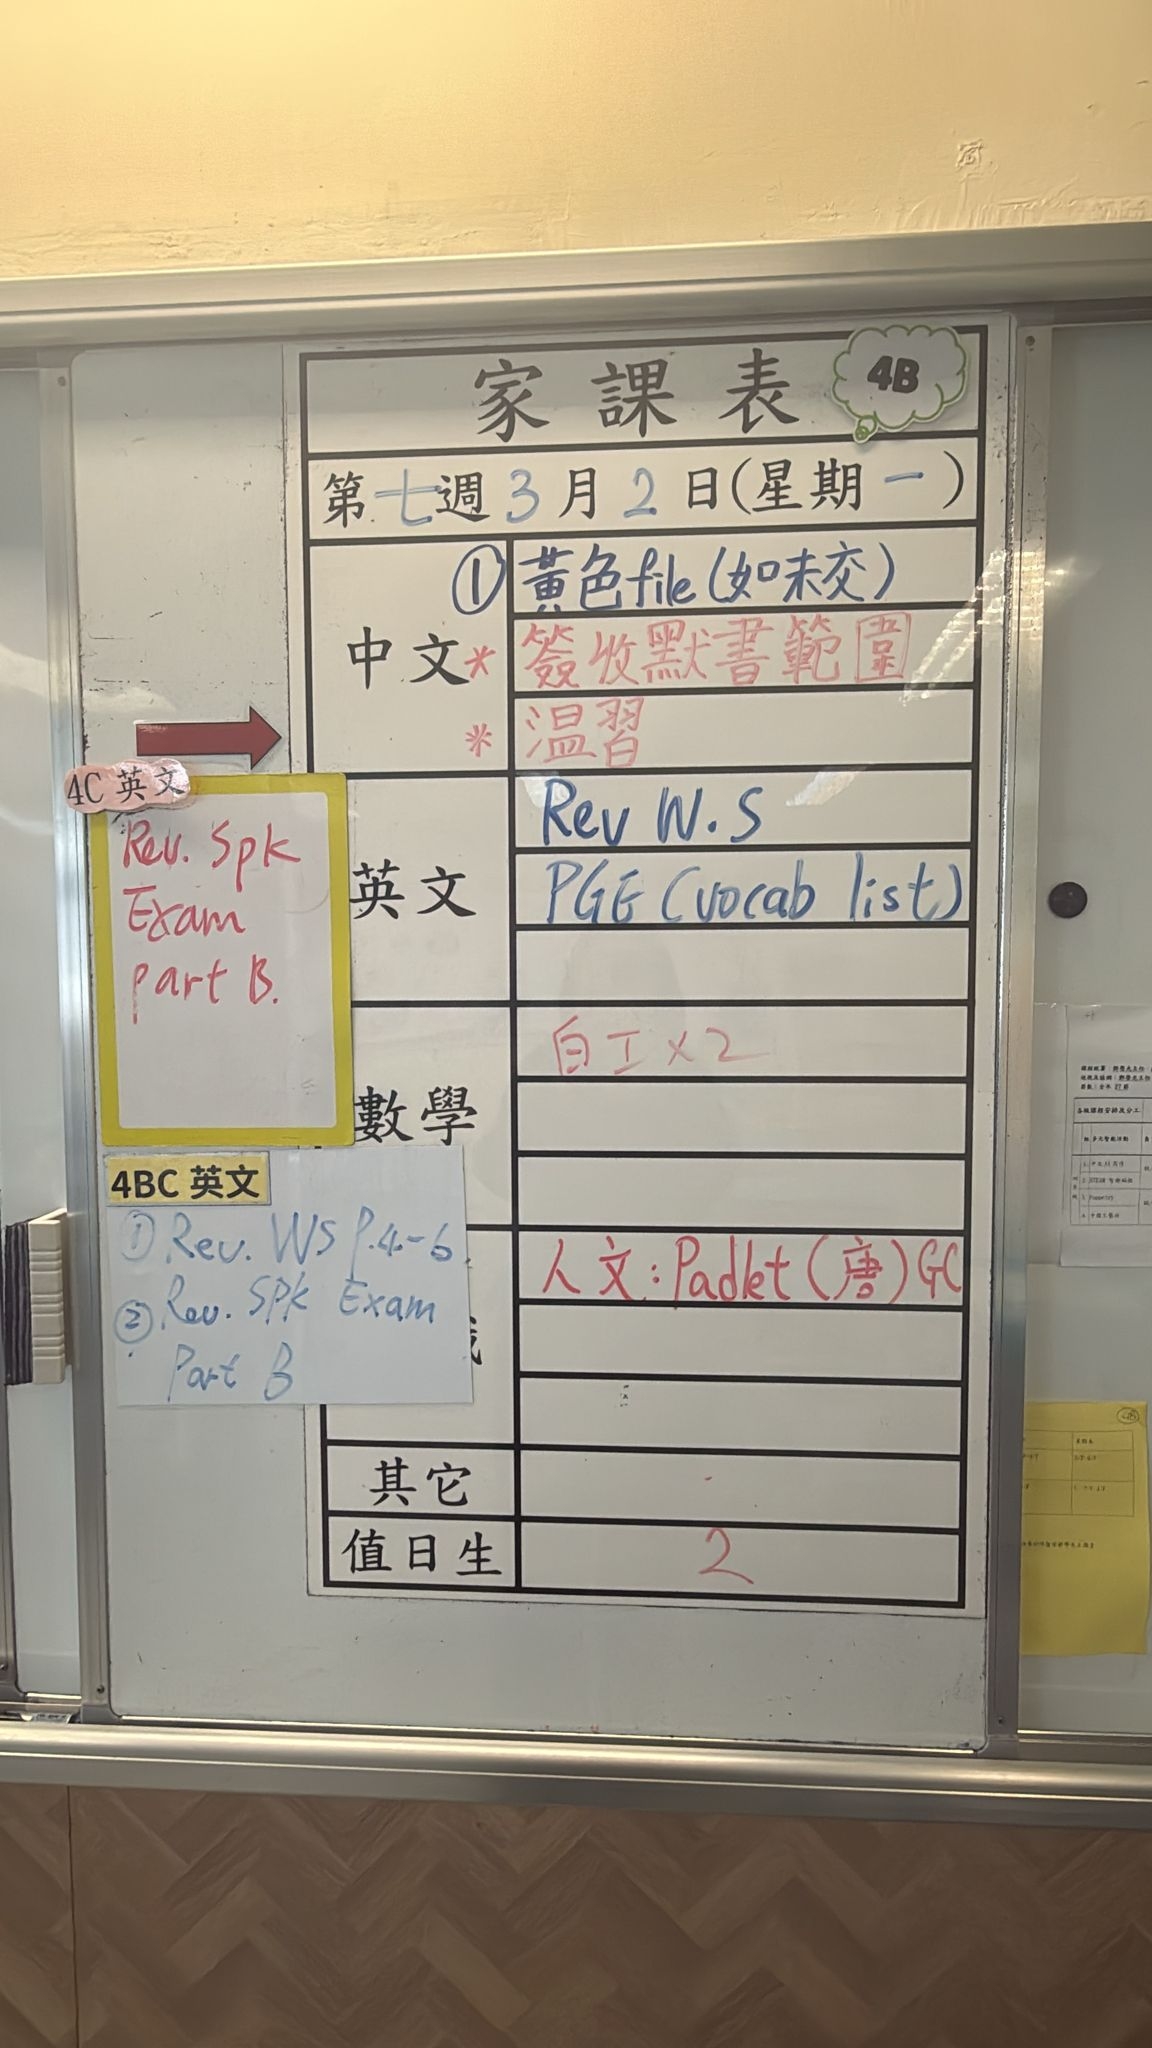 家課表
4B
第七週3月2日(星期一)
中文
① 黃色file(如未交)
* 簽收默書範圍
* 温習
英文
Rev W.S
PGE (vocab list)
數學
白工×2
人文:Padlet(唐)GC
其它
值日生
2
4C 英文
Rev. Spk
Exam
part B.
4BC 英文
① Rev. WS P.4-6
② Rev. SPK Exam
Part B
各級課程安排及分工